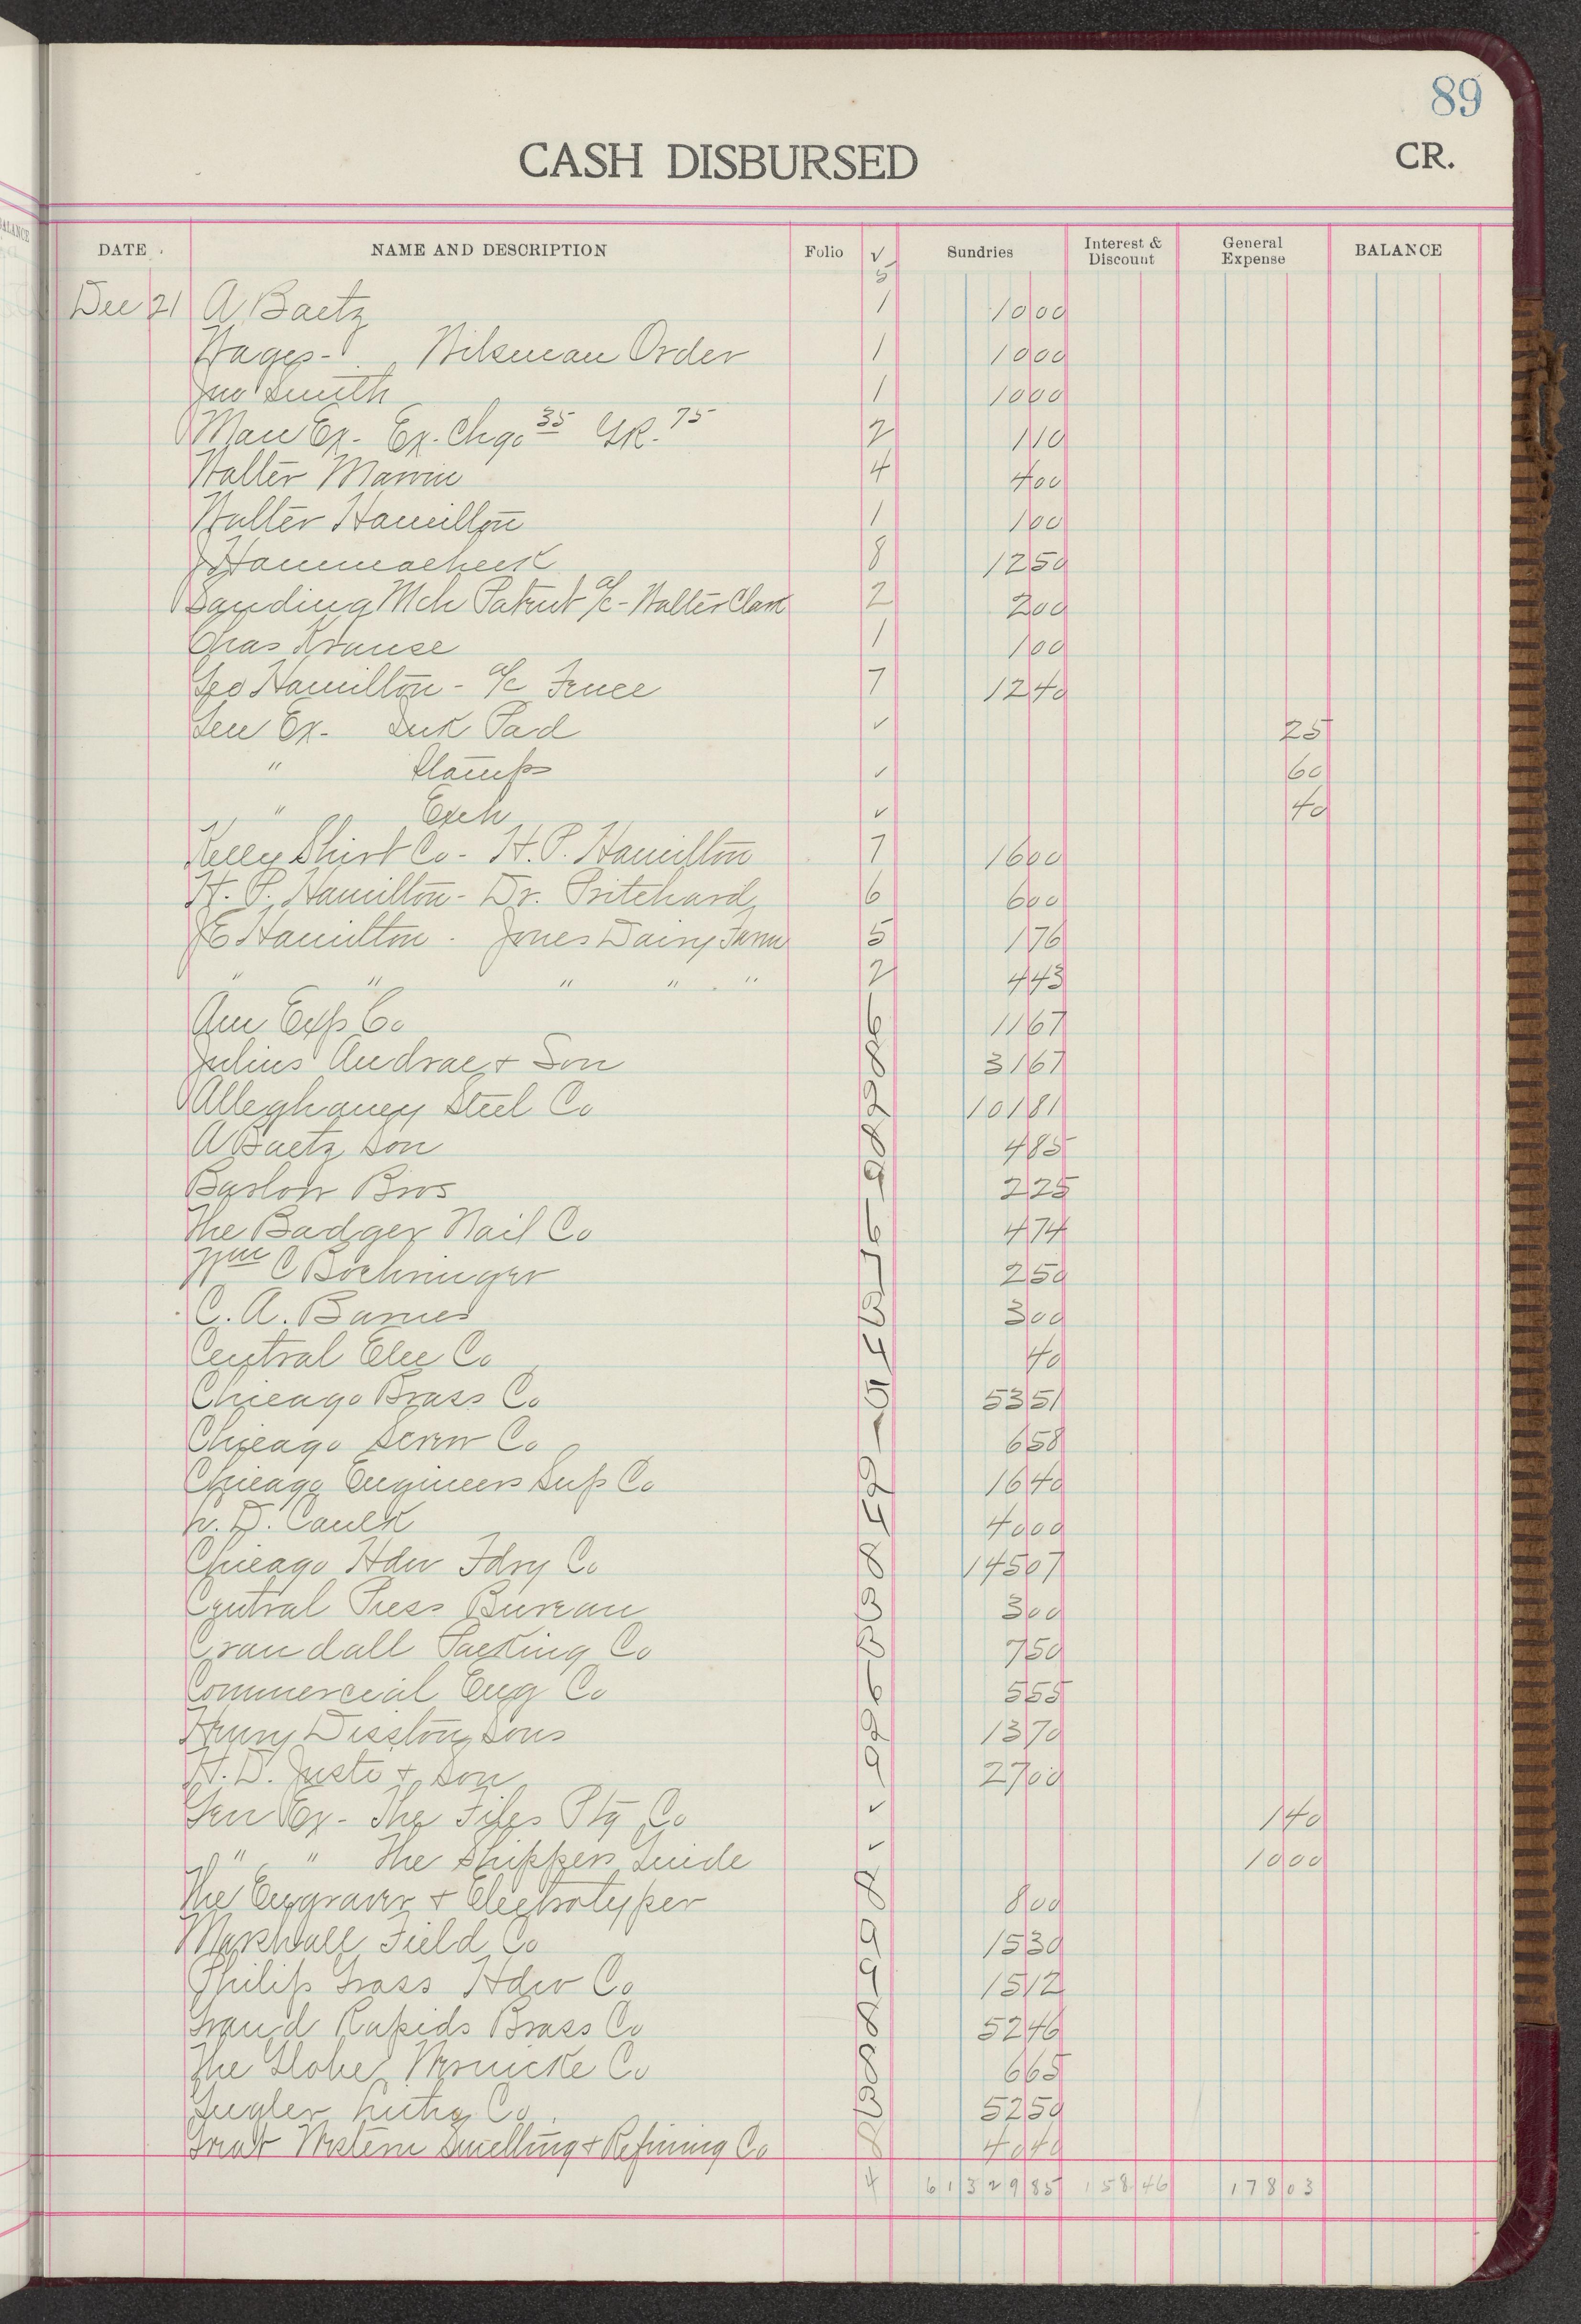 89
CASH DISBURSED CR.
DATE NAME AND DESCRIPTION Folio ✓ Sundries Interest & Discount General Expense BALANCE
5
Dec 21 A Baetz 1 10 00
Wages - Wilsman Order 1 10 00
Jno Smith 1 10 00
Man Ex - Ex. Chgo 35 GR. 75 2 1 10
Walter Marvin 4 4 00
Walter Hamilton 1 1 00
J Hammacheck 8 12 50
Sanding Mch Patent a/c - Walter Clark 2 2 00
Chas Krause 1 1 00
Geo Hamilton - a/c Fence 7 12 40
Gen Ex - Ink Pad ✓ 25
" Stamps ✓ 60
" Exch ✓ 40
Kelly Shirt Co - H. P. Hamilton 7 16 00
H. P. Hamilton - Dr. Pritchard 6 6 00
JE Hamilton - Jones Dairy Farm 5 1 76
" " " " " 2 4 43
Am Exp Co 5 11 67
Julius Andrae & Son 8 31 67
Alleghaney Steel Co 2 101 81
A Baetz Son 8 4 85
Barlow Bros 9 2 25
The Badger Nail Co 5 4 74
Wm C Bochringer 2 50
C. A. Barnes 3 3 00
Central Elec Co 4 40
Chicago Brass Co 5 53 51
Chicago Screw Co 1 6 58
Chicago Engineers Sup Co 2 16 40
L. D. Caulk 4 40 00
Chicago Hdw Fdry Co 8 145 07
Central Press Bureau 3 3 00
Crandall Packing Co 3 7 50
Commercial Eng Co 5 5 55
Henry Disston Sons 2 13 70
H. D. Justi & Son 9 27 00
Gen Ex - The Files Ptg Co ✓ 1 40
" " The Shippers Guide ✓ 10 00
The Engraver & Electrotyper 8 8 00
Marshall Field Co 9 15 30
Philip Grass Hdw Co 9 15 12
Grand Rapids Brass Co 8 52 46
The Globe Wernicke Co 8 6 65
Gugler Litho Co 3 52 50
Great Western Smelting & Refining Co 8 40 40
4 61329 85 158 46 178 03